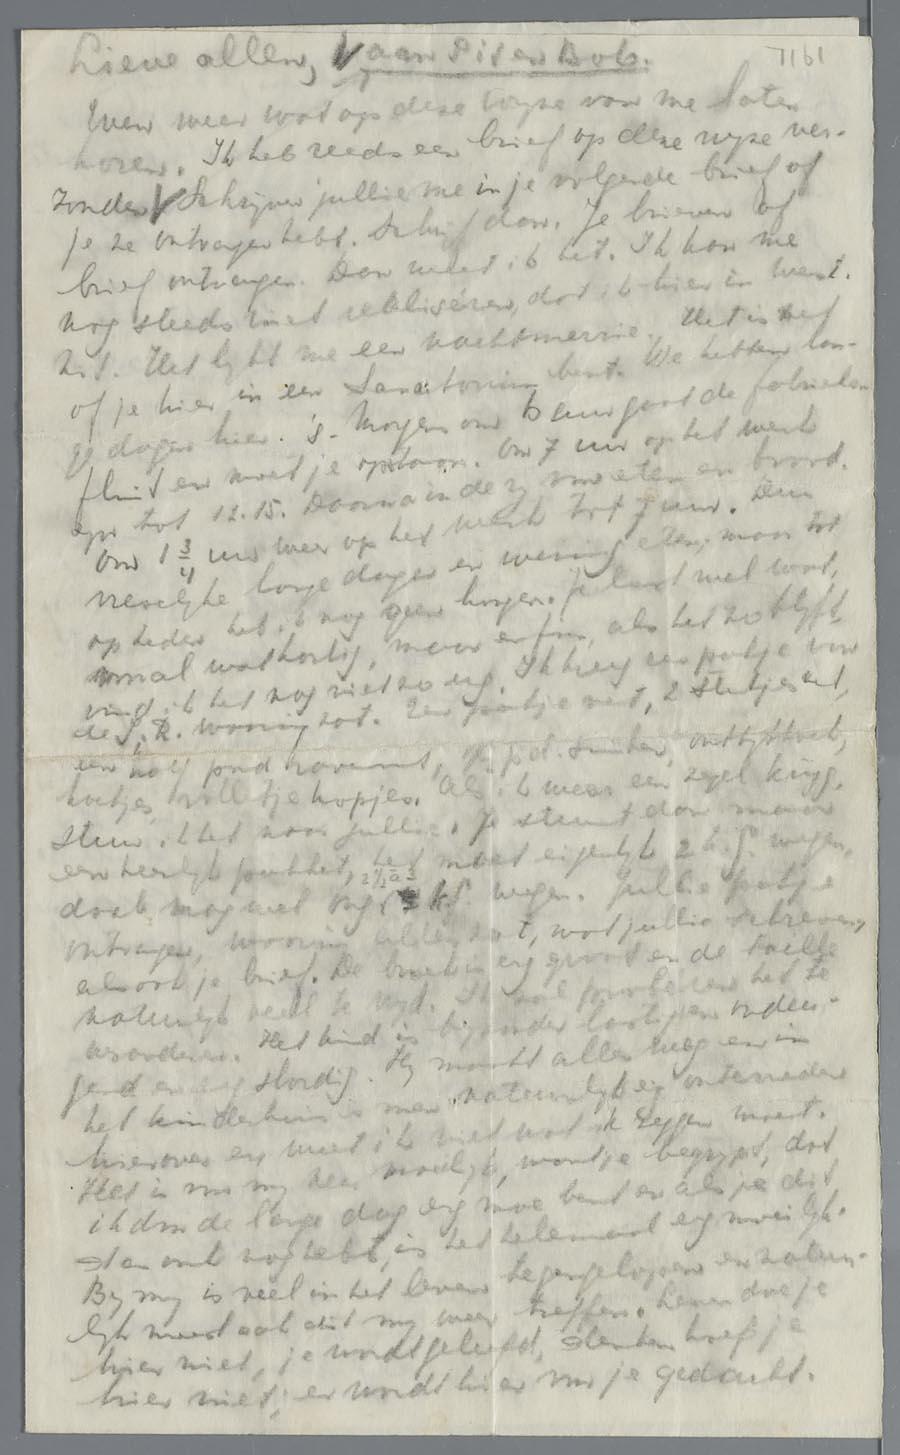 Lieve allen, Vaan Piet en Bob.
7161
Even weer wat op deze wyze van me laten
horen. Ik heb reeds een brief op deze wyze ver-
zonden. Schryven jullie me in je volgende brief of
je ze ontvangen hebt. Schryf dan. Je brieven of
brief ontvangen. Dan weet ik het. Ik kan me
nog steeds niet realiseren, dat ik hier in West.
zit. Het lykt me een nachtmerrie. Het is net
of je hier in een Sanatorium bent. We hebben lan-
ge dagen hier. 's-Morgens om 6 uur gaat de fabrieks
fluit en moet je opstaan. Om 7 uur op het werk
tot 12.15. Daarna in de ry voor eten en brood.
Om 1 3/4 uur weer op het werk tot 7 uur. Een
vreselyke lange dagen en weinig eten, maar tot
op heden heb ik nog geen honger. Je lust wel wat,
maal wat hartig, maar enfin, als het zo blyft,
vind ik het nog niet zo erg. Ik kreeg een pakje van
de J.R. waarin zat. Een pakje vet, 2 stukjes
een half pond havermout, pd. suiker, ontbytkoek,
koekjes, rolletje hopjes. Als ik weer een zegel kryg,
stuur ik het naar jullie. Je stuurt dan maar
een heerlyk pakket, het moet eigenlyk 2 k.g. wegen,
doch mag wel 2 1/2 à 3 k.g. wegen. Jullie pakje
ontvangen, waarin alles zat, wat jullie schreven,
als ook je brief. De broek is erg groot en de taille
natuurlyk veel te wyd. Ik zal proberen het te
veranderen. Het kind is byzonder lastig en ondeu-
gend en erg slordig. Hy maakt alles weg en in
het kinderhuis is men natuurlyk erg ontevreden
hierover en weet ik niet wat ik zeggen moet.
Het is voor my zeer moeilyk, want je begrypt, dat
ik door de lange dag erg moe bent en als je dit
dan ook nog hebt, is het helemaal erg moeilyk.
By my is veel in het leven tegengelopen en natuur-
lyk moest ook dit my weer treffen. Leven doe je
hier niet, je wordt geleefd, denken hoef je
hier niet; er wordt hier voor je gedacht.